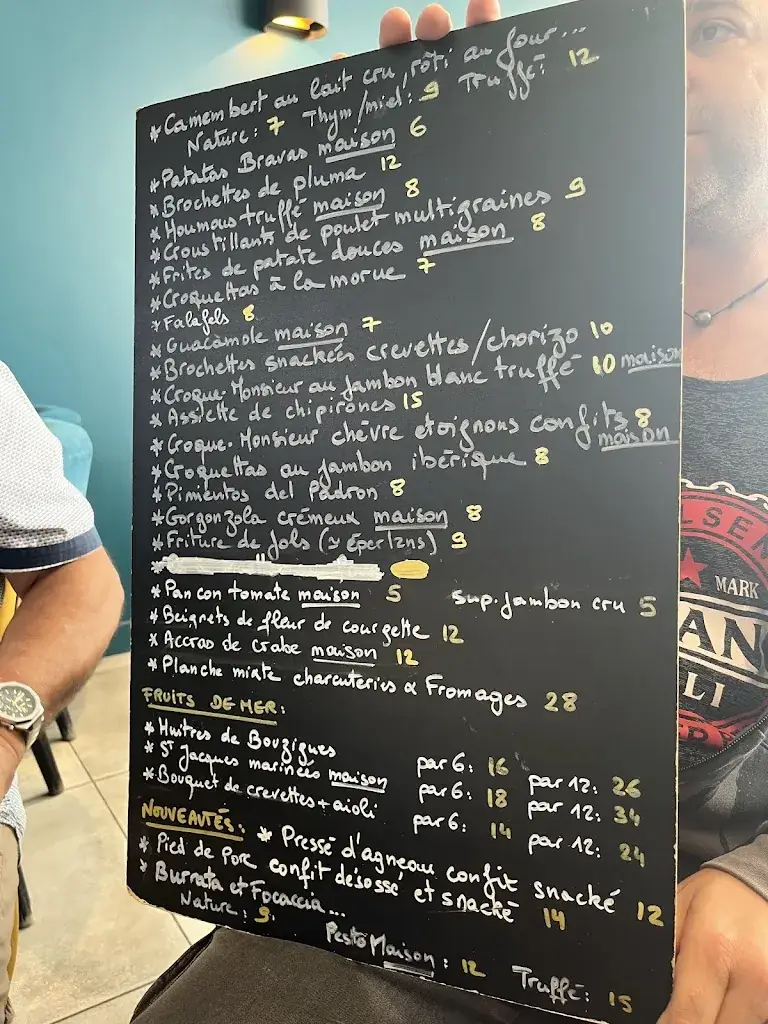 * Camembert au lait cru, rôti au four...
Nature: 7 Thym/miel: 9 Truffé: 12
* Patatas Bravas maison 6
* Brochettes de pluma 12
* Houmous truffé maison 8
* Croustillants de poulet multigraines 9
* Frites de patate douces maison 8
* Croquettas à la morue 7
* Falafels 8
* Guacamole maison 7
* Brochettes snackées crevettes/chorizo 10
* Croque-Monsieur au jambon blanc truffé 10 maison
* Assiette de chipirones 15
* Croque-Monsieur chèvre et oignons confits 8
maison
* Croquettas au jambon ibérique 8
* Pimientos del Padron 8
* Gorgonzola crémeux maison 8
* Friture de Jols (≈ éperlans) 9
* Pan con tomate maison 5 sup. jambon cru 5
* Beignets de fleur de courgette 12
* Accras de crabe maison 12
* Planche mixte charcuteries & Fromages 28
FRUITS DE MER:
* Huitres de Bouzigues par 6: 16 par 12: 26
* St Jacques marinées maison par 6: 18 par 12: 34
* Bouquet de crevettes + aioli par 6: 14 par 12: 24
NOUVEAUTÉS: * Pressé d'agneau confit snacké 12
* Pied de Porc confit désossé et snacké 14
* Burrata et Focaccia...
Nature: 9 Pesto Maison: 12 Truffé: 15
LSEN
MARK
AN
LI